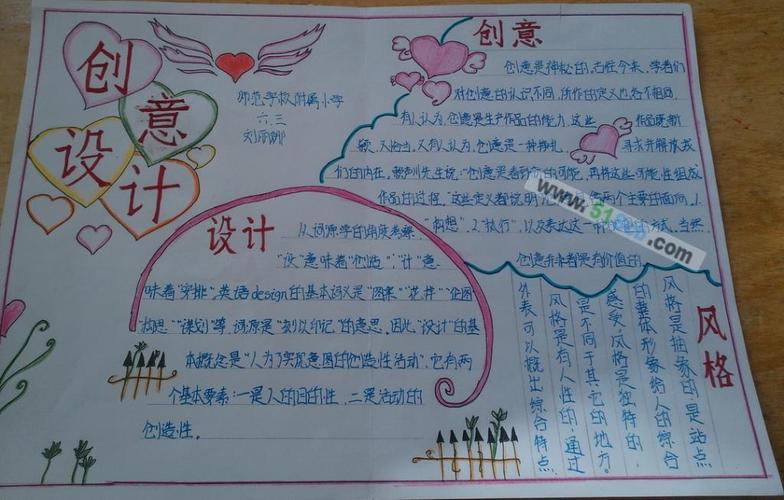 创意
设计
师范学校附属小学
六.三
刘丽娜
创意
创意是神秘的,古往今来,学者们
对创意的认识不同,所作的定义也各不相同
有人认为,创意是生产作品的能力,这些
作品既新
颖,又恰当,又有人认为,创意是一种挣扎,
寻求并解放我
们的内在,赖声川先生说:"创意是看到新的可能,再将这些可能性组成
作品的过程."这些定义都说明
两个主要的面向,1.
"构想",2."执行",以及表达这一
方式,当然.
创意并本都是有价值的
www.51
.com
设计
从词源学的角度来察,
"设"意味着"创造","计"意
味着"安排",英语design的基本词义是"图案""花样""企图
构思""谋划"等,词源是"刻以印记"的意思,因此"设计"的基
本概念是"人为了实现意图的创造性活动",它有两
个基本要素:一是人的目的性,二是活动的
创造性。
风格
风格是抽象的是站点
的整体形象给人的综合
感受,风格是独特的,
是不同于其它的地方。
风格是有人性的,通过
外表可以概出综合特点